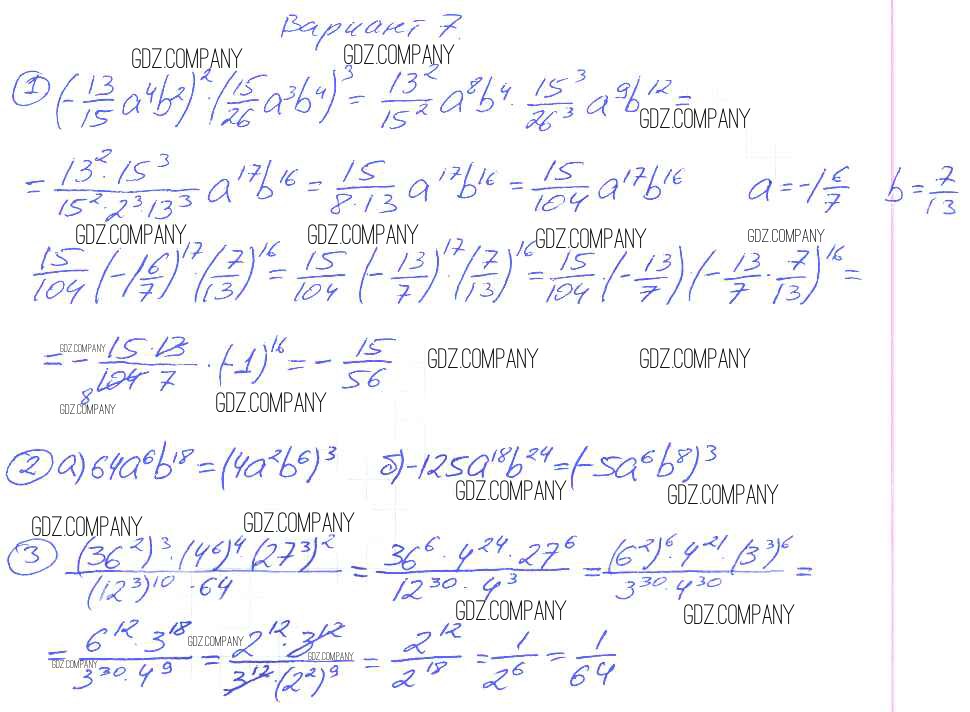 Вариант 7.
GDZ.COMPANY GDZ.COMPANY
① (-13/15 a⁴b²)² · (15/26 a³b⁴)³ = 13²/15² a⁸b⁴ · 15³/26³ a⁹b¹² =
GDZ.COMPANY
= 13²·15³/15²·2³·13³ a¹⁷b¹⁶ = 15/8·13 a¹⁷b¹⁶ = 15/104 a¹⁷b¹⁶ a = -1 6/7 b = 7/13
GDZ.COMPANY GDZ.COMPANY GDZ.COMPANY GDZ.COMPANY
15/104 (-1 6/7)¹⁷ · (7/13)¹⁶ = 15/104 (-13/7)¹⁷ · (7/13)¹⁶ = 15/104 · (-13/7) · (-13/7 · 7/13)¹⁶ =
GDZ.COMPANY GDZ.COMPANY GDZ.COMPANY
= - 15·13/104 8 7 · (-1)¹⁶ = - 15/56
GDZ.COMPANY GDZ.COMPANY
② а) 64a⁶b¹⁸ = (4a²b⁶)³ б) -125a¹⁸b²⁴ = (-5a⁶b⁸)³
GDZ.COMPANY GDZ.COMPANY
GDZ.COMPANY GDZ.COMPANY
③ (36²)³·(4⁶)⁴·(27³)²/(12³)¹⁰·64 = 36⁶·4²⁴·27⁶/12³⁰·4³ = (6²)⁶·4²¹·(3³)⁶/3³⁰·4³⁰ =
GDZ.COMPANY GDZ.COMPANY
= 6¹²·3¹⁸/3³⁰·4⁹ = 2¹²·3¹²/3¹²·(2²)⁹ = 2¹²/2¹⁸ = 1/2⁶ = 1/64
GDZ.COMPANY GDZ.COMPANY GDZ.COMPANY